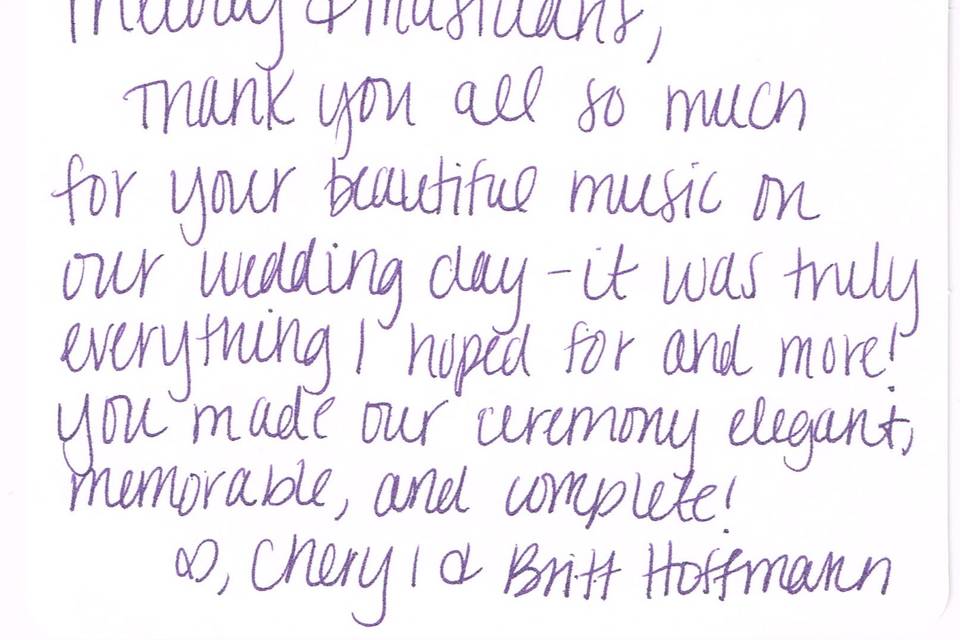 Melody & musicians,
Thank you all so much
for your beautiful music on
our wedding day - it was truly
everything I hoped for and more!
you made our ceremony elegant,
memorable, and complete!
∞, Cheryl & Britt Hoffmann